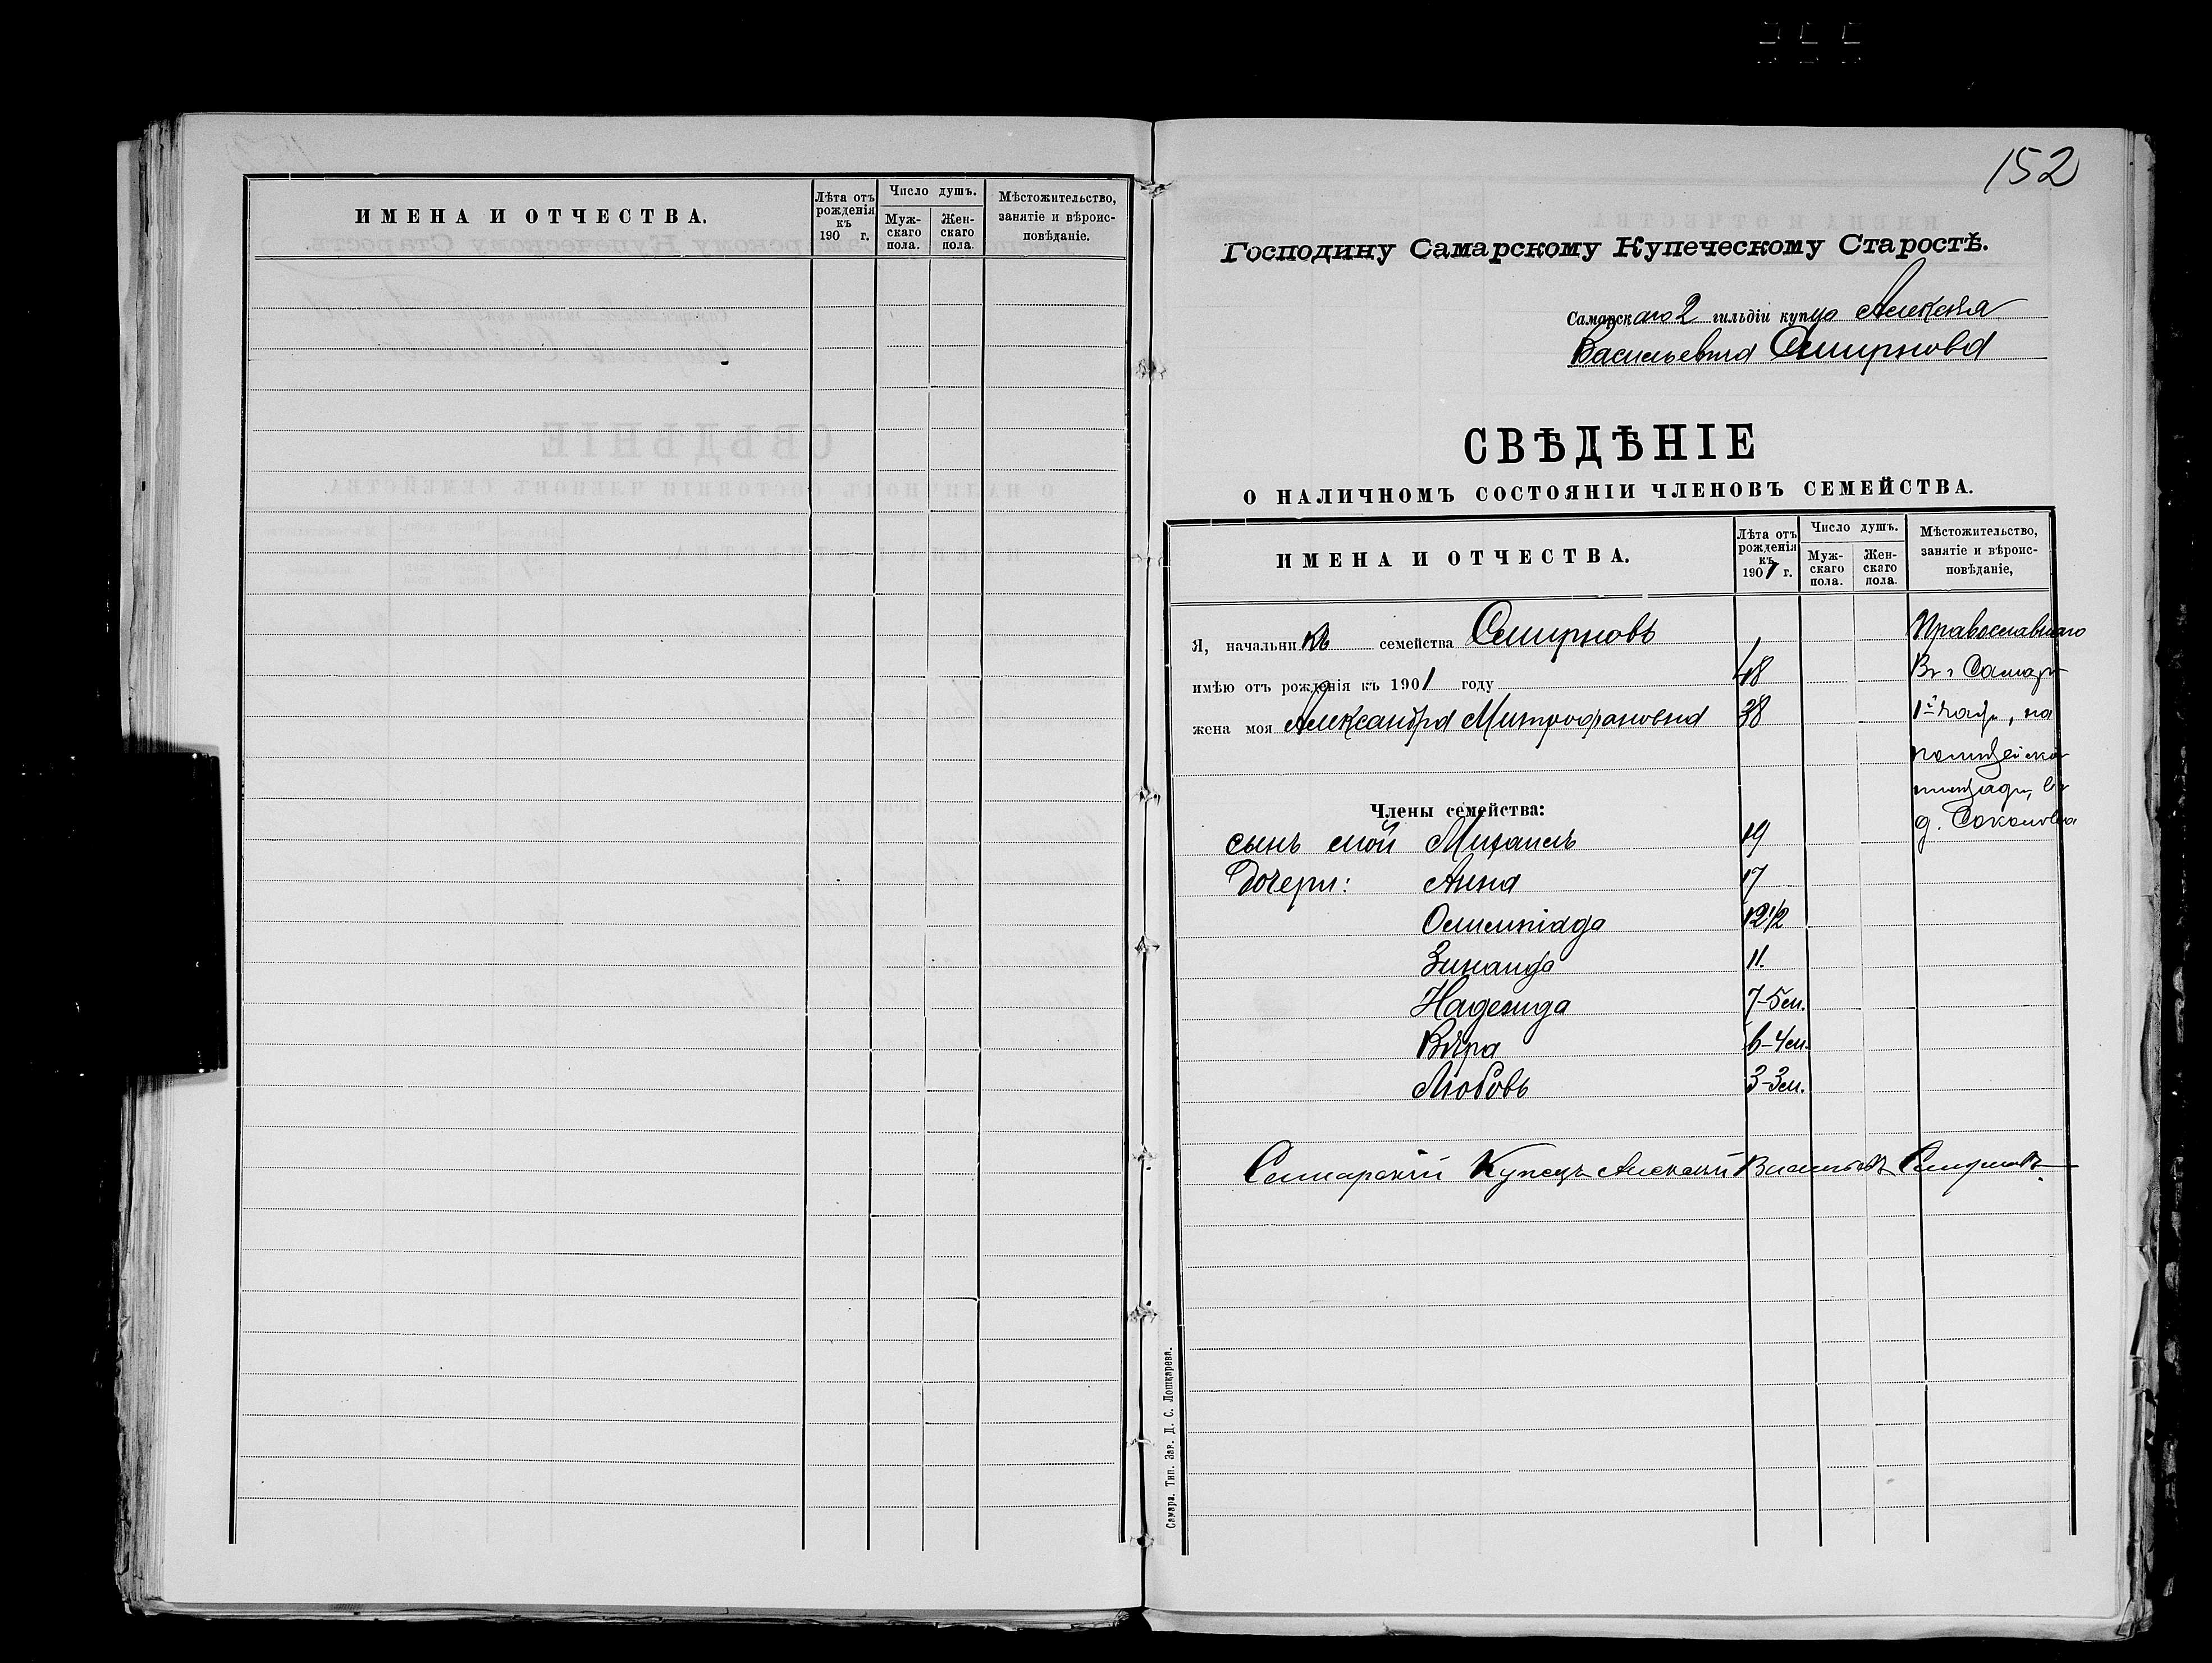 ИМЕНА И ОТЧЕСТВА.
Лѣта отъ рожденія къ 190 г.
Число душъ.
Муж- скаго пола.
Жен- скаго пола.
Мѣстожительство, занятіе и вѣроис- повѣданіе.
152
Господину Самарскому Купеческому Старостѣ.
Самарскаго 2 гильдіи купца Алексѣя
Васильевича Смирнова
СВѢДѢНІЕ
О НАЛИЧНОМЪ СОСТОЯНІИ ЧЛЕНОВЪ СЕМЕЙСТВА.
ИМЕНА И ОТЧЕСТВА.
Лѣта отъ рожденія къ 1901 г.
Число душъ.
Муж- скаго пола.
Жен- скаго пола.
Мѣстожительство, занятіе и вѣроис- повѣданіе,
Я, начальникъ семейства Смирновъ Православнаго
имѣю отъ рожденія къ 1901 году 48 Въ г Самарѣ
жена моя Александра Митрофановна 38 1й части, на
полицейской
площади, въ
Члены семейства:
д. Соколова
сынъ мой Михаилъ 19
Дочери: Анна 17
Олимпіада 12 1/2
Зинаида 11.
Надежда 7-5м.
Вѣра 6-4м.
Любовь 3-3м.
Самарскій Купецъ Алексѣй Васильевъ Смирновъ.
Самара. Тип. Зав. Д. С. Лошкарева.